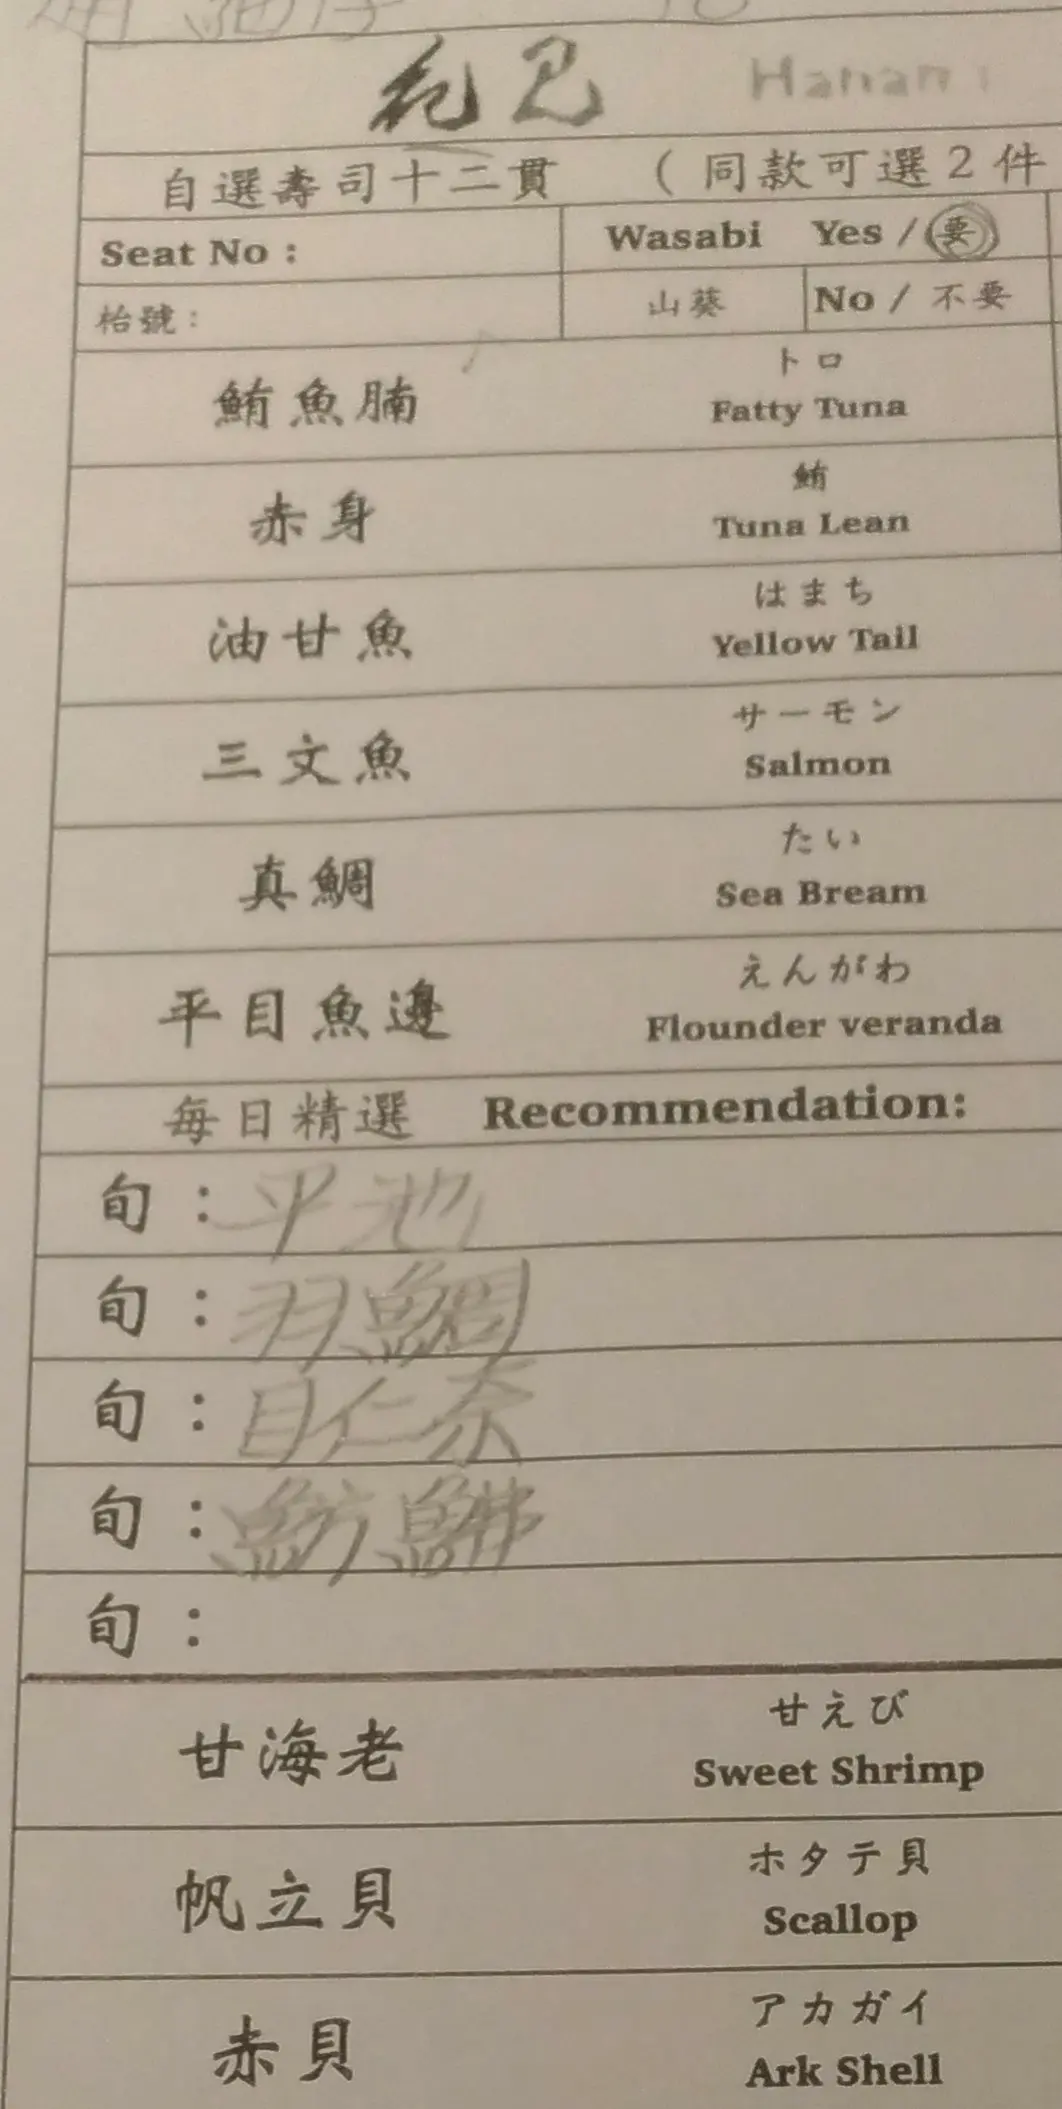 花見 Hanami
自選壽司十二貫 （同款可選2件
Seat No :
Wasabi Yes / 要
枱號：
山葵 No / 不要
鮪魚腩
トロ
Fatty Tuna
赤身
鮪
Tuna Lean
油甘魚
はまち
Yellow Tail
三文魚
サーモン
Salmon
真鯛
たい
Sea Bream
平目魚邊
えんがわ
Flounder veranda
每日精選 Recommendation:
旬：平池
旬：羽鯛
旬：目仁奈
旬：魴鮄
旬：
甘海老
甘えび
Sweet Shrimp
帆立貝
ホタテ貝
Scallop
赤貝
アカガイ
Ark Shell